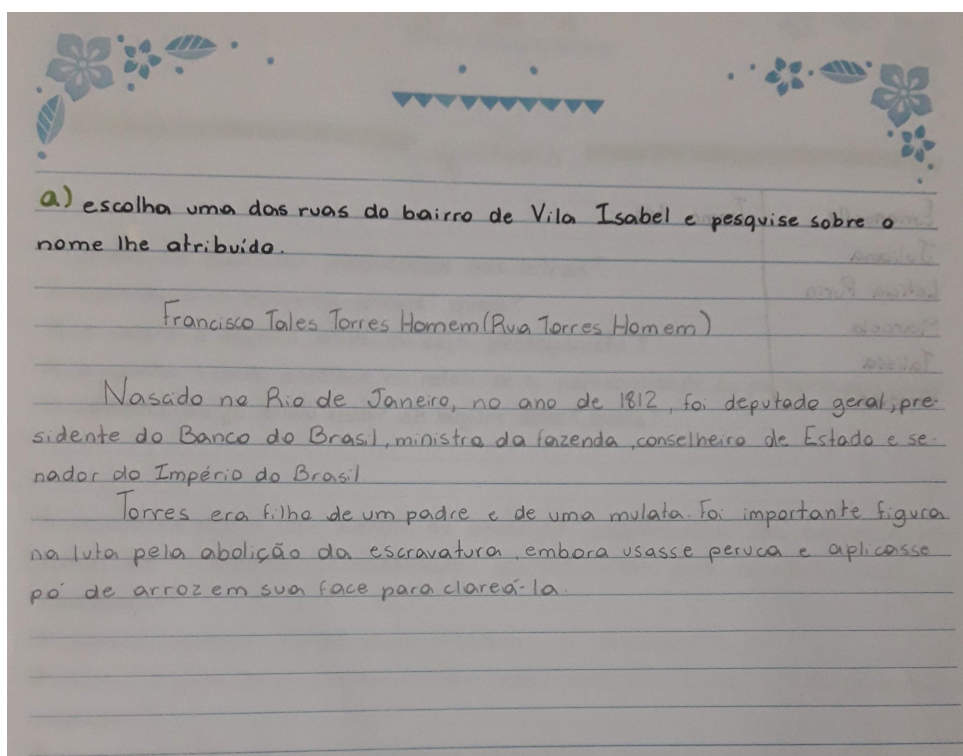 a) escolha uma das ruas do bairro de Vila Isabel e pesquise sobre o
nome lhe atribuído.
Francisco Tales Torres Homem (Rua Torres Homem)
Nascido no Rio de Janeiro, no ano de 1812, foi deputado geral, pre-
sidente do Banco do Brasil, ministro da fazenda, conselheiro de Estado e se-
nador do Império do Brasil
Torres era filho de um padre e de uma mulata. Foi importante figura
na luta pela abolição da escravatura, embora usasse peruca e aplicasse
pó de arroz em sua face para clareá-la.